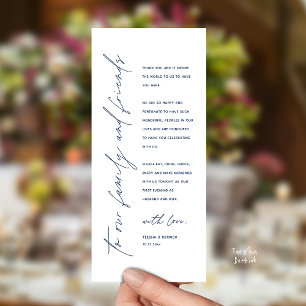 to our family and friends
THANK YOU AND IT MEANS
THE WORLD TO US TO HAVE
YOU HERE.
WE ARE SO HAPPY AND
FORTUNATE TO HAVE SUCH
WONDERFUL PEOPLES IN OUR
LIVES AND ARE HONOURED
TO HAVE YOU CELEBRATING
WITH US.
PLEASE EAT, DRINK, DANCE,
ENJOY AND MAKE MEMORIES
WITH US TONIGHT AS OUR
FIRST EVENING AS
HUSBAND AND WIFE.
with love,
TEESHA & DERRICK